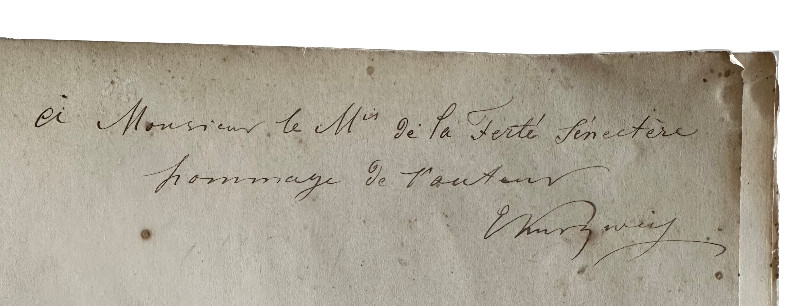 à Monsieur le Mis de la Ferté Sénectère
hommage de l'auteur